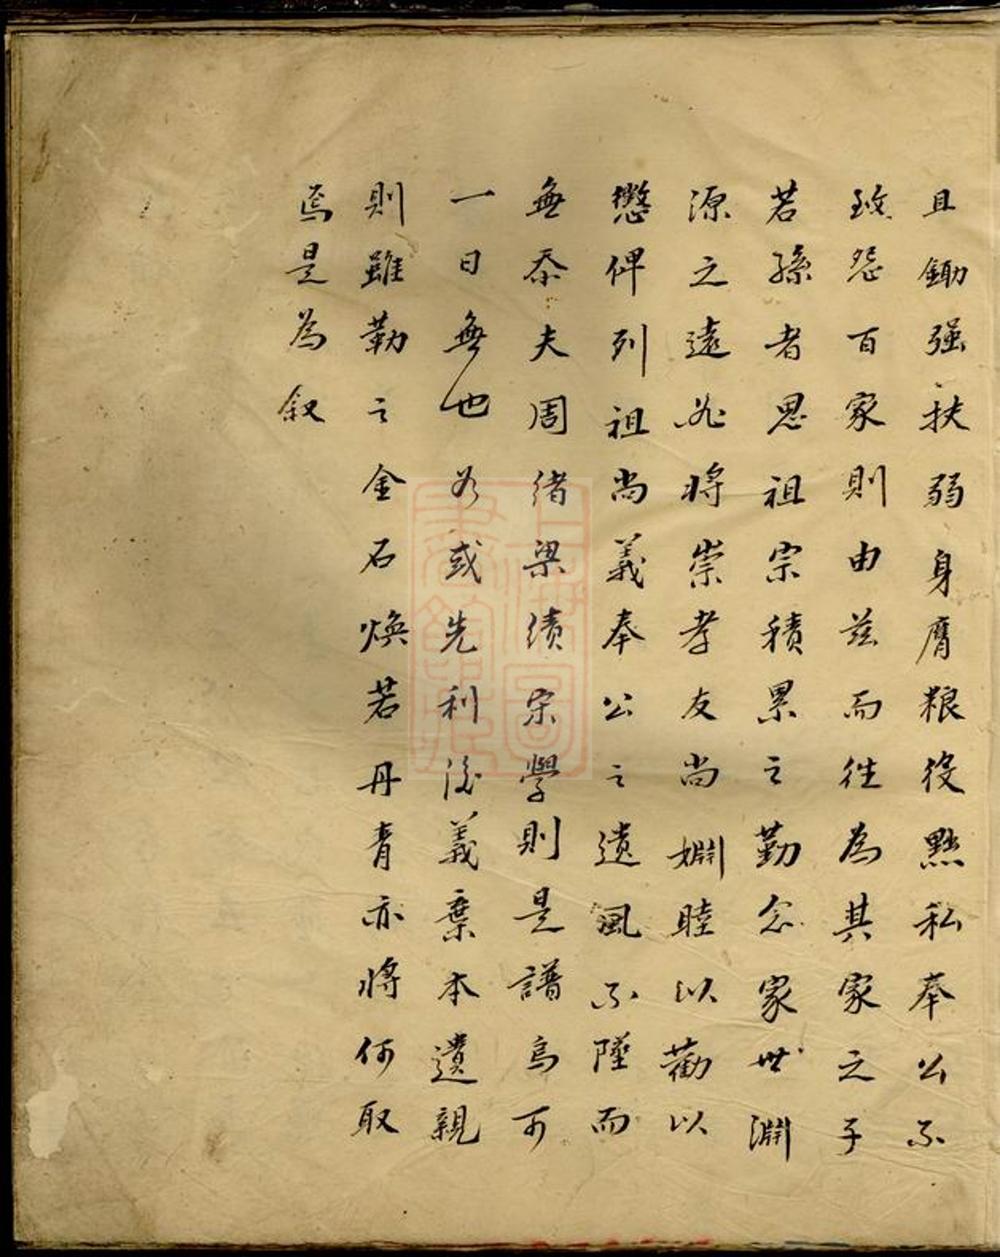 且鋤强扶弱身膺粮役黜私奉公不
致怨百家則由茲而往為其家之子
若孫者思祖宗積累之勤念家世淵
源之遠必將崇孝友尚婣睦以勸以
懲俾列祖尚義奉公之遺風不墜而
無忝夫周緒梁績宋學則是譜烏可
一日無也如或先利後義棄本遺親
則雖勒之金石煥若丹青亦將何取
焉是為叙
上海圖書館藏